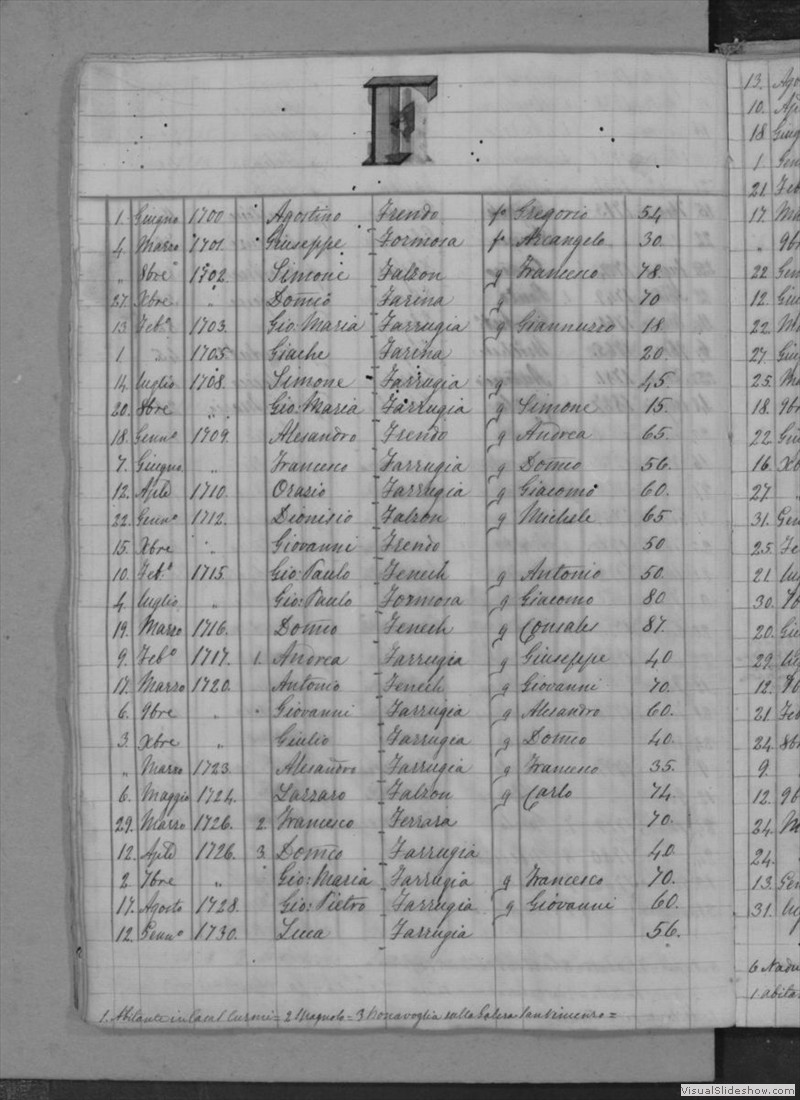 F
1. Giugno 1700. Agostino Frendo fo Gregorio 54
4. Marzo 1701. Giuseppe Formosa fo Arcangelo 30.
" 8bre 1702. Simone Falzon g Francesco 78
27. Xbre " Domco Farina g 70
13 Febo 1703. Gio: Maria Farrugia g Giannuzzo 18.
1 1705. Giache Farina 20.
14. luglio 1708. Simone Farrugia g 45
20. 8bre " Gio: Maria Farrugia g Simone 15.
18. Genno 1709. Alesandro Frendo g Andrea 65.
7. Giugno " Francesco Farrugia g Domco 56.
12. Aple 1710. Orazio Farrugia g Giacomo 60.
22. Genno 1712. Dionisio Falzon g Michele 65
15. Xbre " Giovanni Frendo 50
10. Febo 1715. Gio: Paulo Fenech g Antonio 50.
4. luglio " Gio: Paulo Formosa g Giacomo 80
19. Marzo 1716. Domco Fenech g Consales 87.
9. Febo 1717. 1. Andrea Farrugia g Giuseppe 40
17. Marzo 1720. Antonio Fenech g Giovanni 70.
6. 9bre " Giovanni Farrugia g Alesandro 60.
3. Xbre " Giulio Farrugia g Domco 40.
" Marzo 1723. Alesandro Farrugia g Francesco 35.
6. Maggio 1724. Lazzaro Falzon g Carlo 74.
29. Marzo 1726. 2. Francesco Ferrara 70.
12. Aple 1726. 3. Domco Farrugia 40.
2. 7bre " Gio: Maria Farrugia g Francesco 70.
17. Agosto 1728. Gio: Pietro Farrugia g Giovanni 60.
12. Genno 1730. Luca Farrugia 56.
1. Abitante in Casal Curmi = 2 = 3 Bonavoglia sulla Galera =
13. Ago
10. Ap
18 Giug
1 Gen
21. Feb
17. Ma
" 9br
22. Gen
12. Giu
22. Ma
27. Giu
25. Ma
18. 9br
22 Giu
16. Xb
27 "
31. Gen
25. Fe
21. lug
30.
20. Gi
29. lug
12.
21. Feb
24. 8br
9. "
12. 9b
24. M
24. "
13. Gen
31. lug
6 Nadu
1 abita
VisualSlideshow.com